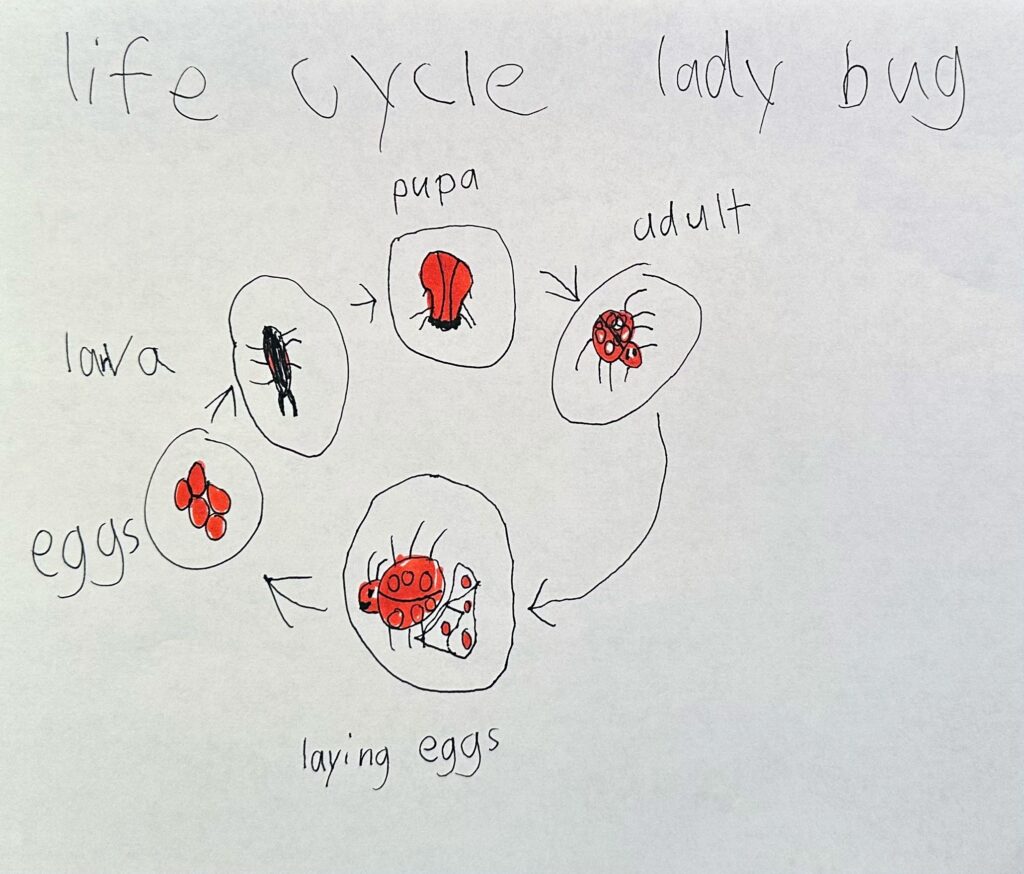 life cycle lady bug
pupa
adult
larva
eggs
laying eggs